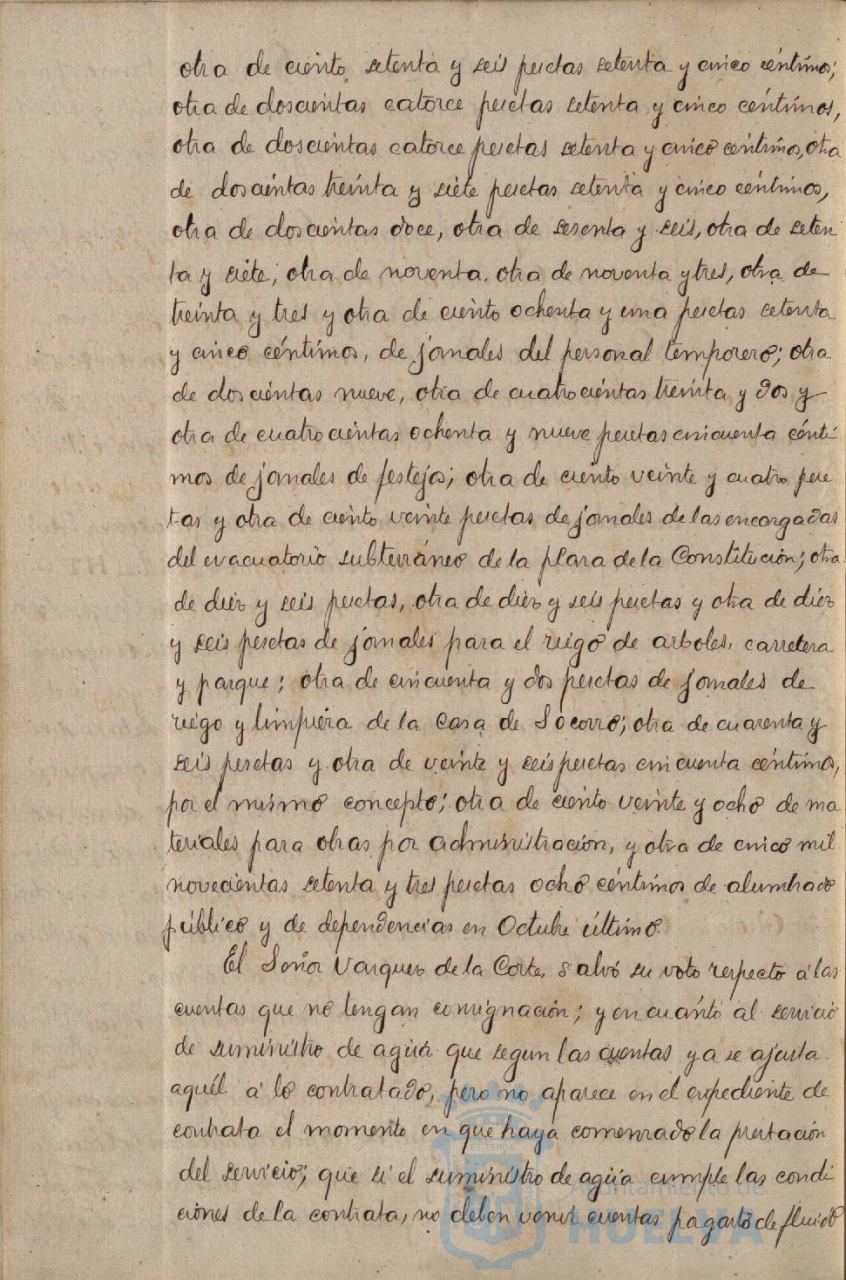 otra de ciento setenta y seis pesetas setenta y cinco céntimos;
otra de doscientas catorce pesetas setenta y cinco céntimos,
otra de doscientas catorce pesetas setenta y cinco céntimos, otra
de doscientas treinta y siete pesetas setenta y cinco céntimos,
otra de doscientas doce, otra de sesenta y seis, otra de seten
ta y siete, otra de noventa, otra de noventa y tres, otra de
treinta y tres y otra de ciento ochenta y una pesetas setenta
y cinco céntimos, de jornales del personal temporero; otra
de doscientas nueve, otra de cuatrocientas treinta y dos y
otra de cuatrocientas ochenta y nueve pesetas cincuenta cénti
mos de jornales de festejos; otra de ciento veinte y cuatro pese
tas y otra de ciento veinte pesetas de jornales de las encargadas
del evacuatorio subterráneo de la plaza de la Constitución; otra
de diez y seis pesetas, otra de diez y seis pesetas y otra de diez
y seis pesetas de jornales para el riego de arboles, carretera
y parque; otra de cincuenta y dos pesetas de jornales de
riego y limpieza de la Casa de Socorro; otra de cuarenta y
seis pesetas y otra de veinte y seis pesetas cincuenta céntimos,
por el mismo concepto; otra de ciento veinte y ocho de ma
teriales para obras por administración, y otra de cinco mil
novecientas setenta y tres pesetas ocho céntimos de alumbrado
público y de dependencias en Octubre último.
El Señor Vazquez de la Corte, salvó su voto respecto á las
cuentas que no tengan consignación; y en cuanto al servicio
de suministro de agua que segun las cuentas ya se ajusta
aquél á lo contratado, pero no aparece en el expediente de
contrata el momento en que haya comenzado la prestación
del servicio; que si el suministro de agua cumple las condi
ciones de la contrata, no deben venir cuentas pa gasto de fluido
Ayuntamiento de
HUELVA